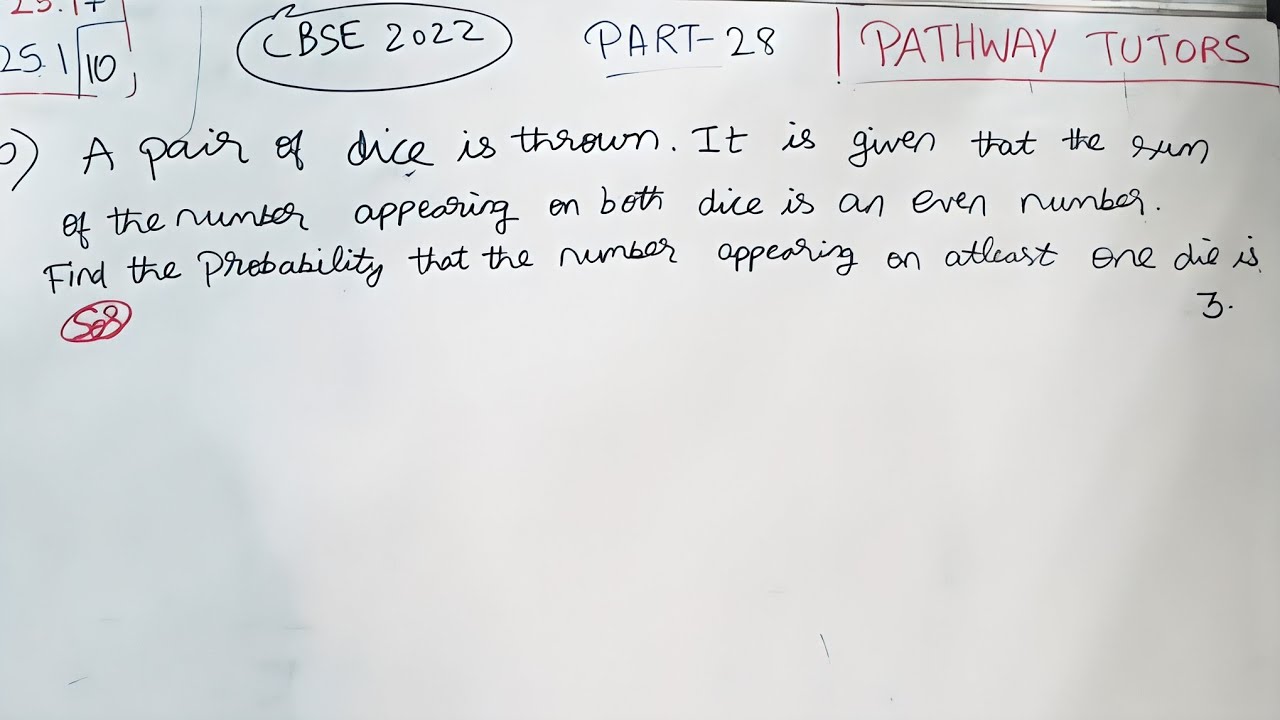 25.1+
25.1 10
CBSE 2022 PART-28 PATHWAY TUTORS
A pair of dice is thrown. It is given that the sum
of the number appearing on both dice is an even number.
Find the Probability that the number appearing on atleast one die is
3.
Sol